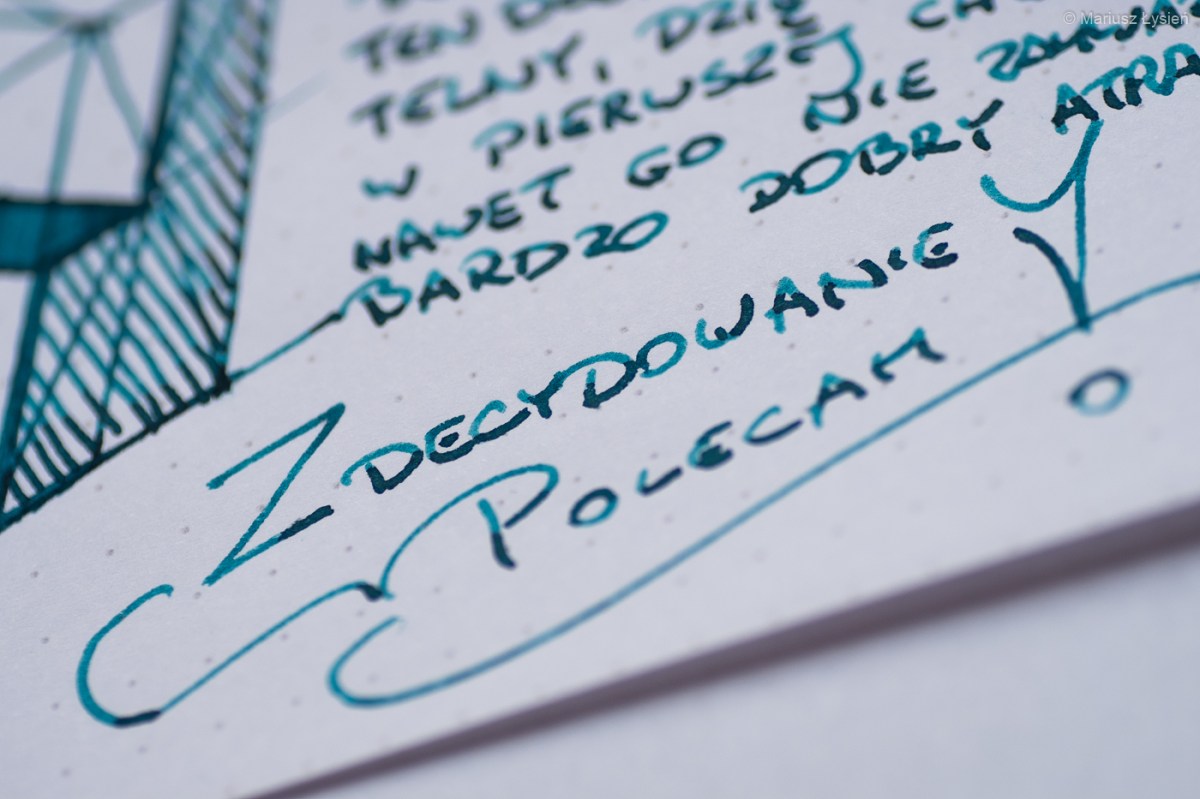 © Mariusz Łysień
TEN
TELNY, DZIĘ
W PIERWSZEJ
NAWET GO NIE
BARDZO DOBRY ATRA
ZDECYDOWANIE
POLECAM!